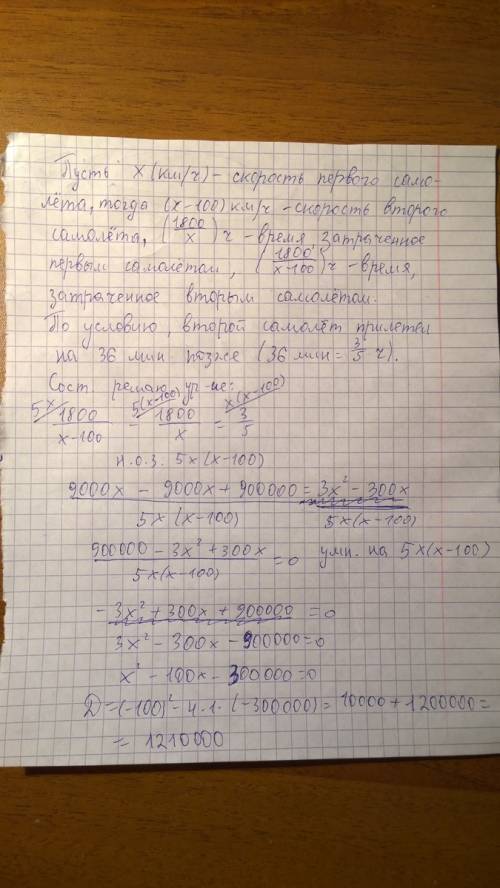 Пусть x (км/ч) - скорость первого само-
лёта, тогда (x-100) км/ч - скорость второго
самолёта, (1800/x) ч - время затраченное
первым самолётом, (1800/x-100) ч - время,
затраченное вторым самолётом.
По условию, второй самолёт прилетел
на 36 мин позже (36 мин = 3/5 ч).
Сост. решаю ур-ие:
5x/ 1800/x-100 - 5(x-100)/ 1800/x = x(x-100)/ 3/5
н.о.з. 5x(x-100)
9000x - 9000x + 900000/5x(x-100) = 3x² - 300x/5x(x-100)
900000 - 3x² + 300x/5x(x-100) = 0 умн. на 5x(x-100)
-3x² + 300x + 900000 = 0
3x² - 300x - 900000 = 0
x² - 100x - 300000 = 0
Д = (-100)² - 4·1·(-300000) = 10000 + 1200000 =
= 1210000